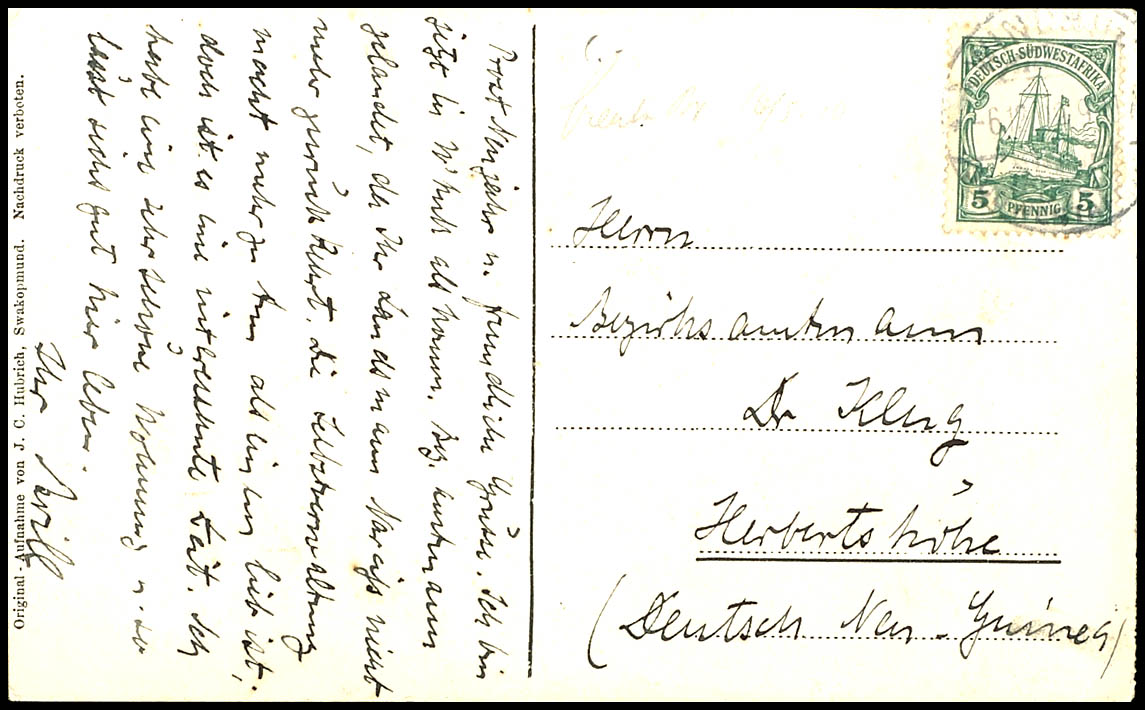 Original-Aufnahme von J. C. Hubrich, Swakopmund. Nachdruck verboten.
Prost Neujahr u. freundliche Grüsse. Ich bin
jetzt in W'huk als komm. Bez. amtmann
gelandet, da Ihr Landsmann Narciss nicht
mehr zurück kehrt. Die Selbstverwaltung
macht mehr zu tun als einem lieb ist,
doch ist es eine interessante Zeit. Ich
habe eine sehr schöne Wohnung u. es
lässt sich gut hier leben.
Ihr
DEUTSCH-SÜDWESTAFRIKA
5 PFENNIG 5
Herrn
Bezirksamtmann
Dr Klug
Herbertshöhe
(Deutsch Neu-Guinea)